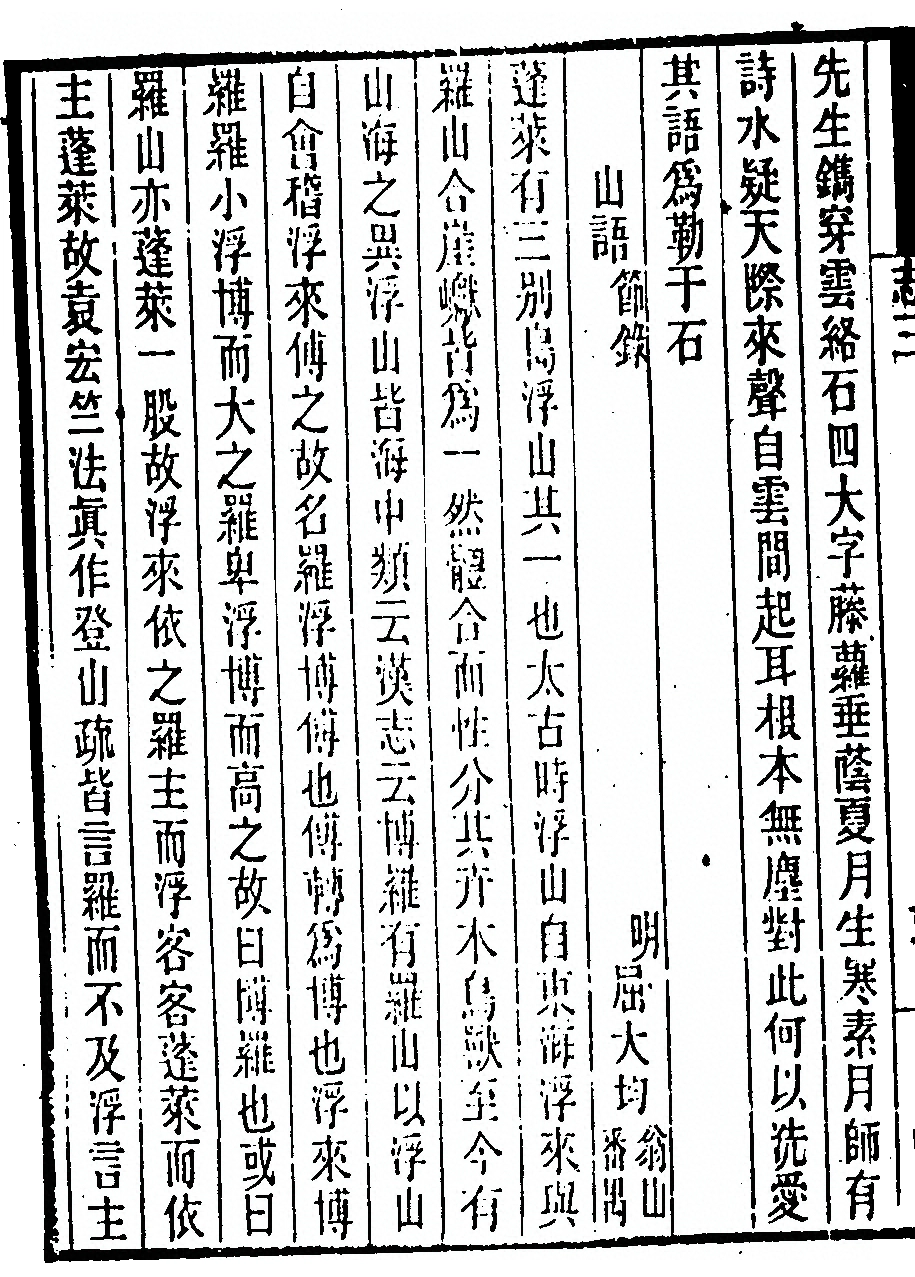 先生鐫穿雲絡石四大字藤蘿垂蔭夏月生寒素月師有
詩水疑天際來聲自雲間起耳根本無塵對此何以洗愛
其語爲勒于石
山語節錄 明屈大均翁山番禺
蓬萊有三別島浮山其一也太古時浮山自東海浮來與
羅山合崖巘皆爲一然體合而性分其卉木鳥獸至今有
山海之異浮山皆海中類云漢志云博羅有羅山以浮山
自會稽浮來傅之故名羅浮博傅也傅轉爲博也浮來博
羅羅小浮博而大之羅卑浮博而高之故曰博羅也或曰
羅山亦蓬萊一股故浮來依之羅主而浮客客蓬萊而依
主蓬萊故袁宏竺法眞作登山疏皆言羅而不及浮言主